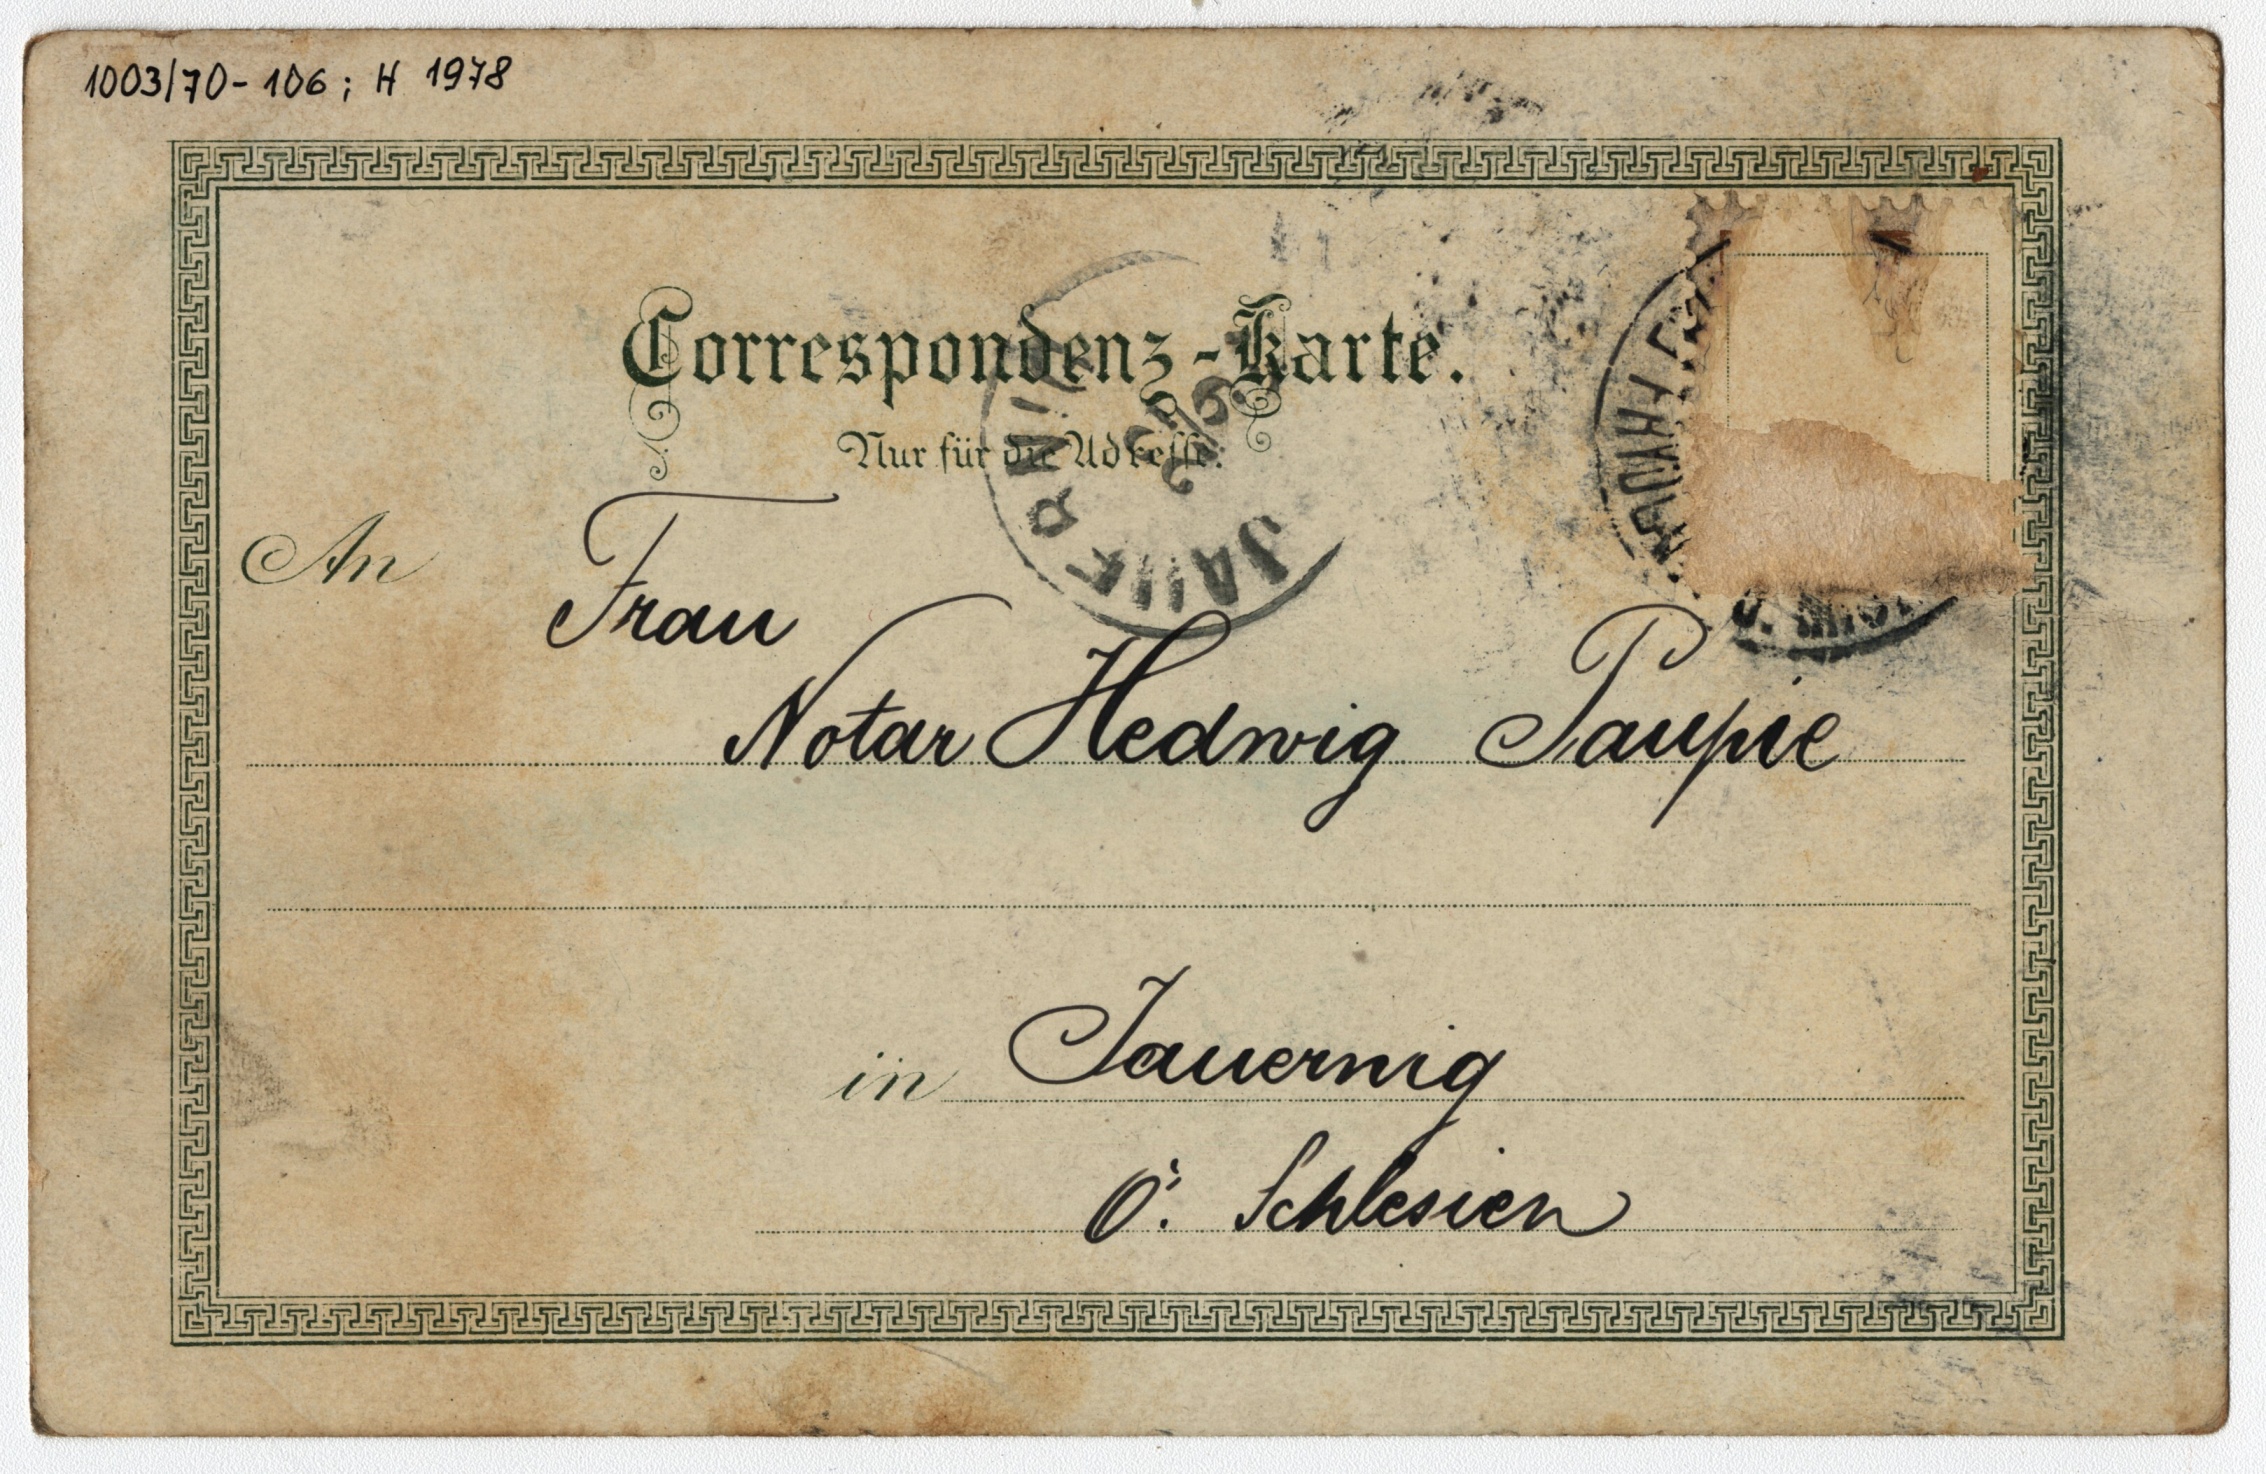 1003/70-106; H 1978
Correspondenz-Karte.
Nur für die Adresse.
An
Frau
Notar Hedwig Paupie
in Jauernig
Ö. Schlesien
JAUERNIG